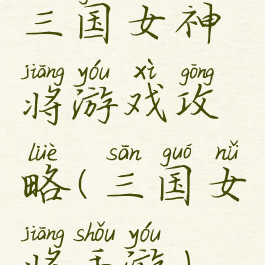 三国女神
jiāng yóu xì gōng
将游戏攻
lüè sān guó nǚ
略(三国女
jiāng shǒu yóu
将手游)